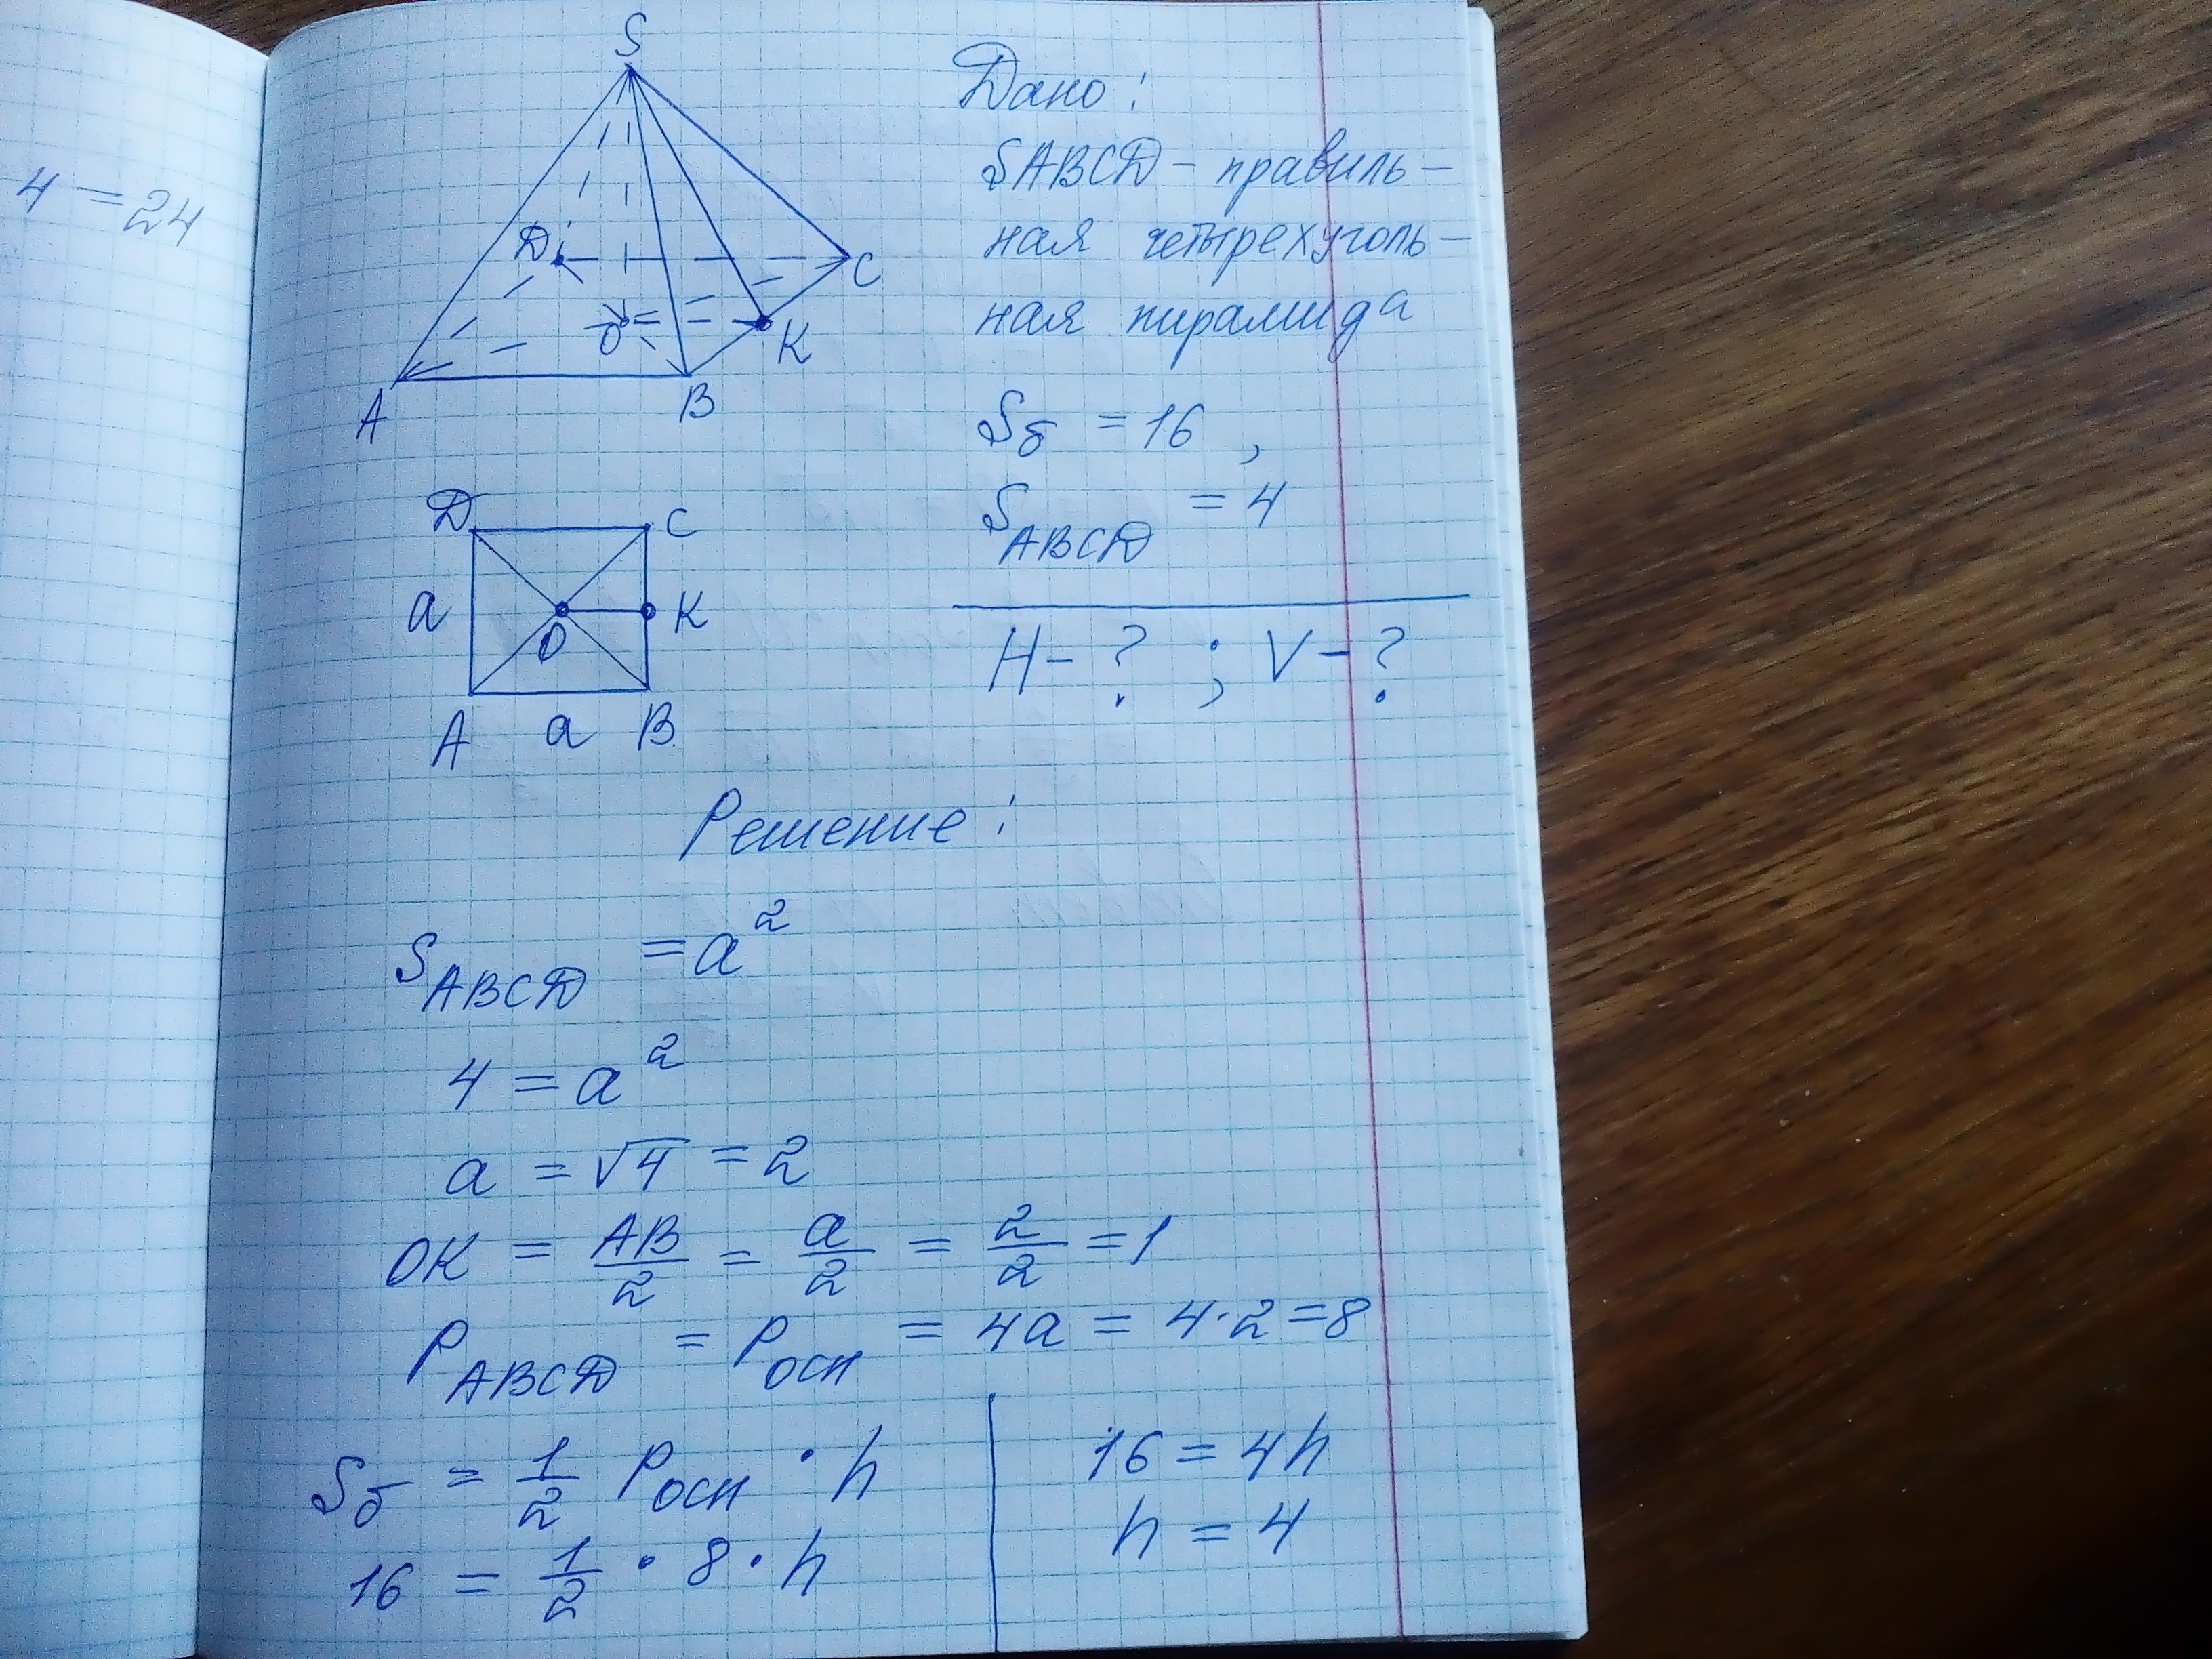 4 = 24
S
D
C
O
K
A
B
Дано:
SABCD – правиль-
ная четырехуголь-
ная пирамида
Sб = 16 ,
S_ABCD = 4
H – ? ; V – ?
D
C
a
K
O
A
a
B
Решение:
S_ABCD = a²
4 = a²
a = √4 = 2
OK = AB/2 = a/2 = 2/2 = 1
P_ABCD = P_осн = 4a = 4·2 = 8
Sб = 1/2 P_осн · h
16 = 1/2 · 8 · h
16 = 4h
h = 4